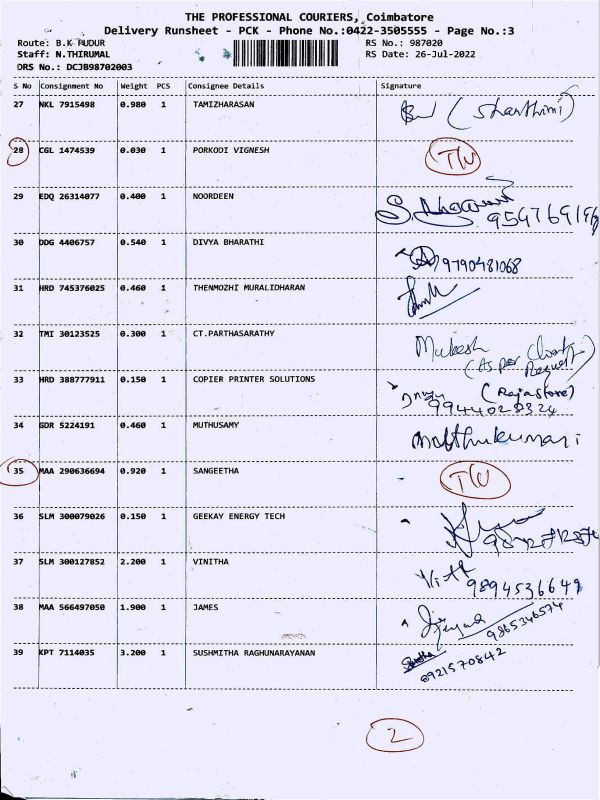 THE PROFESSIONAL COURIERS, Coimbatore
Delivery Runsheet - PCK - Phone No.:0422-3505555 - Page No.:3
Route: B.K PUDUR RS No.: 987020
Staff: N.THIRUMAL RS Date: 26-Jul-2022
DRS No.: DCJB98702003
S No Consignment No Weight PCS Consignee Details Signature
27 NKL 7915498 0.980 1 TAMIZHARASAN
28 CGL 1474539 0.030 1 PORKODI VIGNESH
29 EDQ 26314077 0.400 1 NOORDEEN
30 DDG 4406757 0.540 1 DIVYA BHARATHI 9790481068
31 HRD 745376025 0.460 1 THENMOZHI MURALIDHARAN
32 TMI 30123525 0.300 1 CT.PARTHASARATHY Mukesh
(As per Client Request)
33 HRD 388777911 0.150 1 COPIER PRINTER SOLUTIONS (Rajastore)
9944028324
34 GDR 5224191 0.460 1 MUTHUSAMY
35 MAA 290636694 0.920 1 SANGEETHA
36 SLM 300079026 0.150 1 GEEKAY ENERGY TECH
37 SLM 300127852 2.200 1 VINITHA 9894536649
38 MAA 566497050 1.900 1 JAMES 9865346574
39 KPT 7114035 3.200 1 SUSHMITHA RAGHUNARAYANAN
8921570842
2